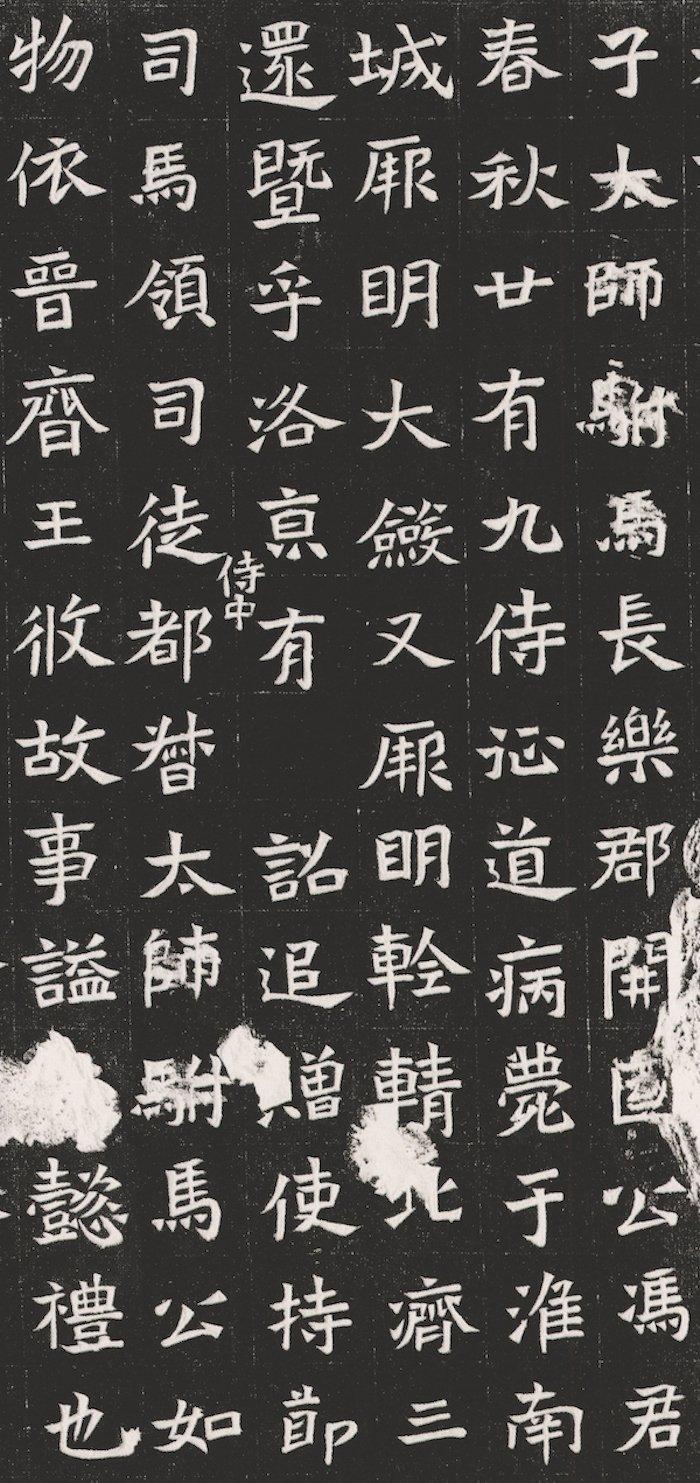 子太師駙馬長樂郡開國公馮君
春秋廿有九侍征道病薨于淮南
城厥明大斂又厥明輇輤北濟三
還暨乎洛亰有 詔追贈使持節
司馬領司徒侍中都督太師駙馬公如
物依晉齊王攸故事謚懿禮也